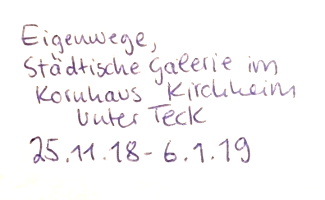 Eigenwege,
Städtische Galerie im
Kornhaus Kirchheim
unter Teck
25.11.18 - 6.1.19